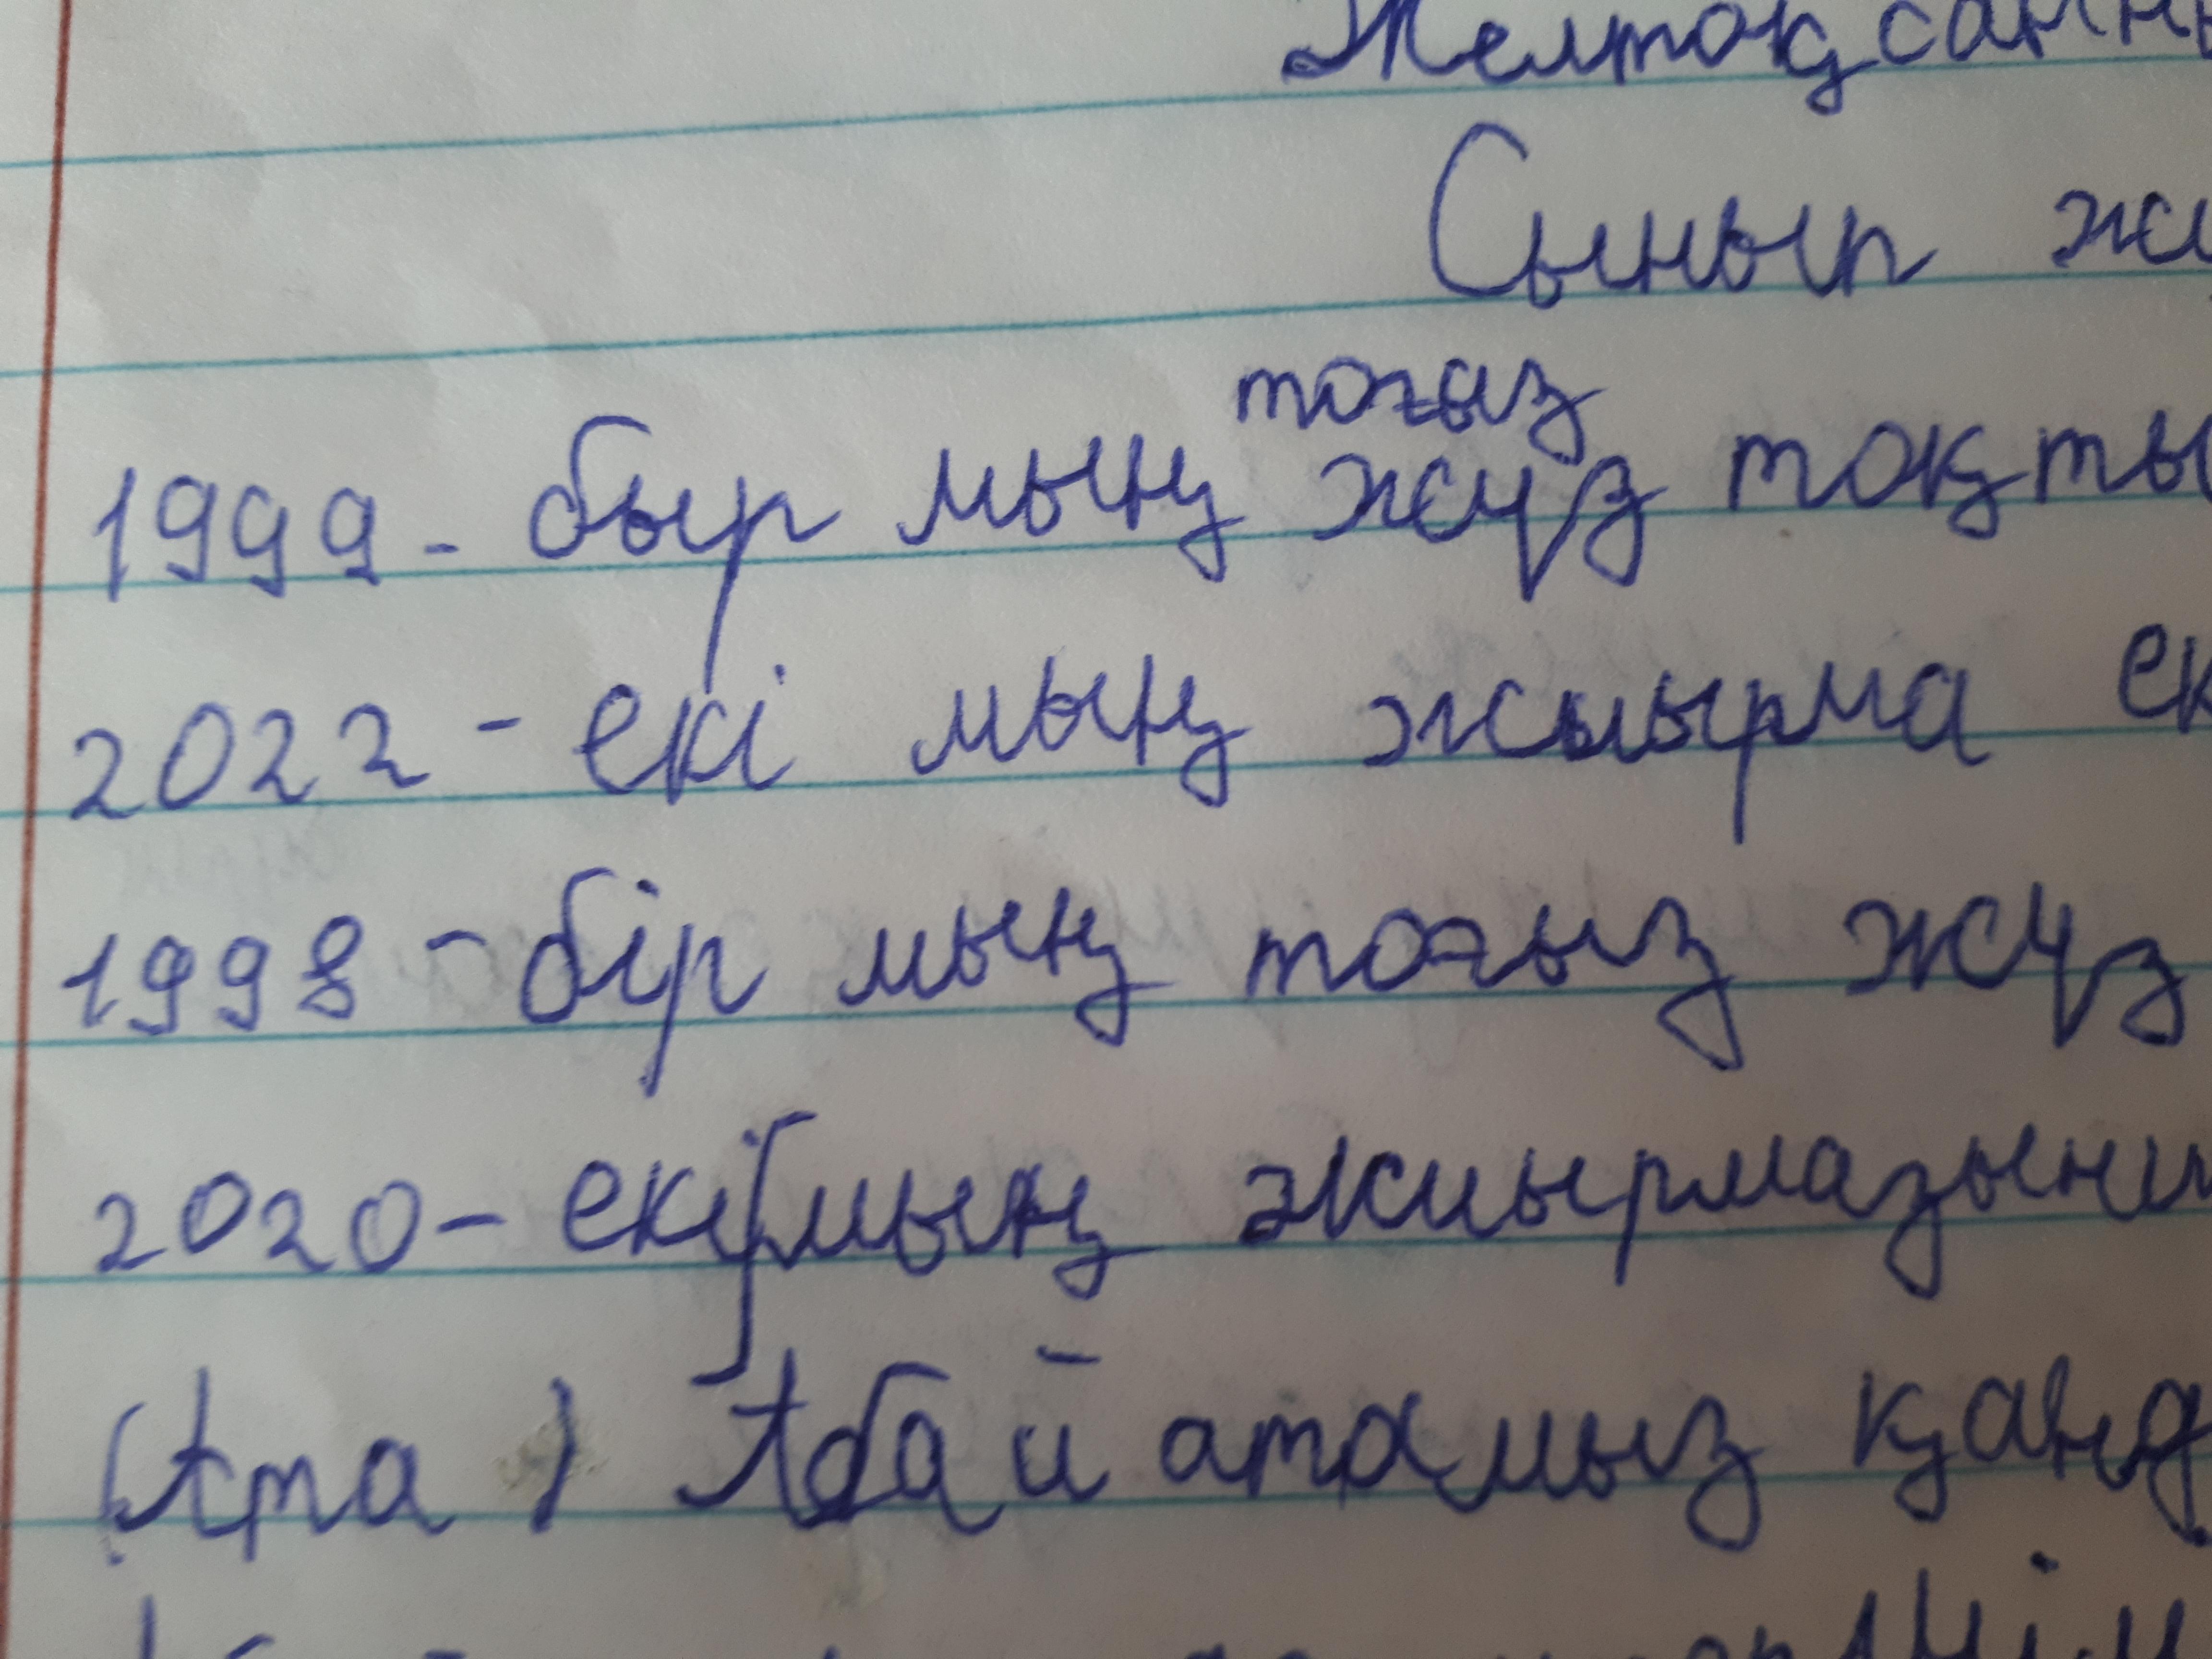 Желтоқсанны
Сынып жұ
тоғыз
1999 - быр мың жүз тоқты
2022 - екі мың жиырма ек
1998 - бір мың тоғыз жүз
2020 - екі мың жиырмазынш
(Ата) Абай атамыз қанд